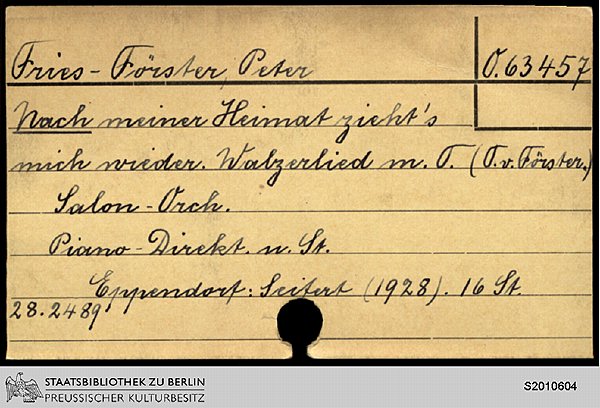 Fries-Förster, Peter
O.63457
Nach meiner Heimat zieht's
mich wieder. Walzerlied m. T. (T. v. Förster.)
Salon-Orch.
Piano-Direkt. u. St.
Eppendorf: Seifert (1928). 16 St.
28.2489
STAATSBIBLIOTHEK ZU BERLIN
PREUSSISCHER KULTURBESITZ
S2010604